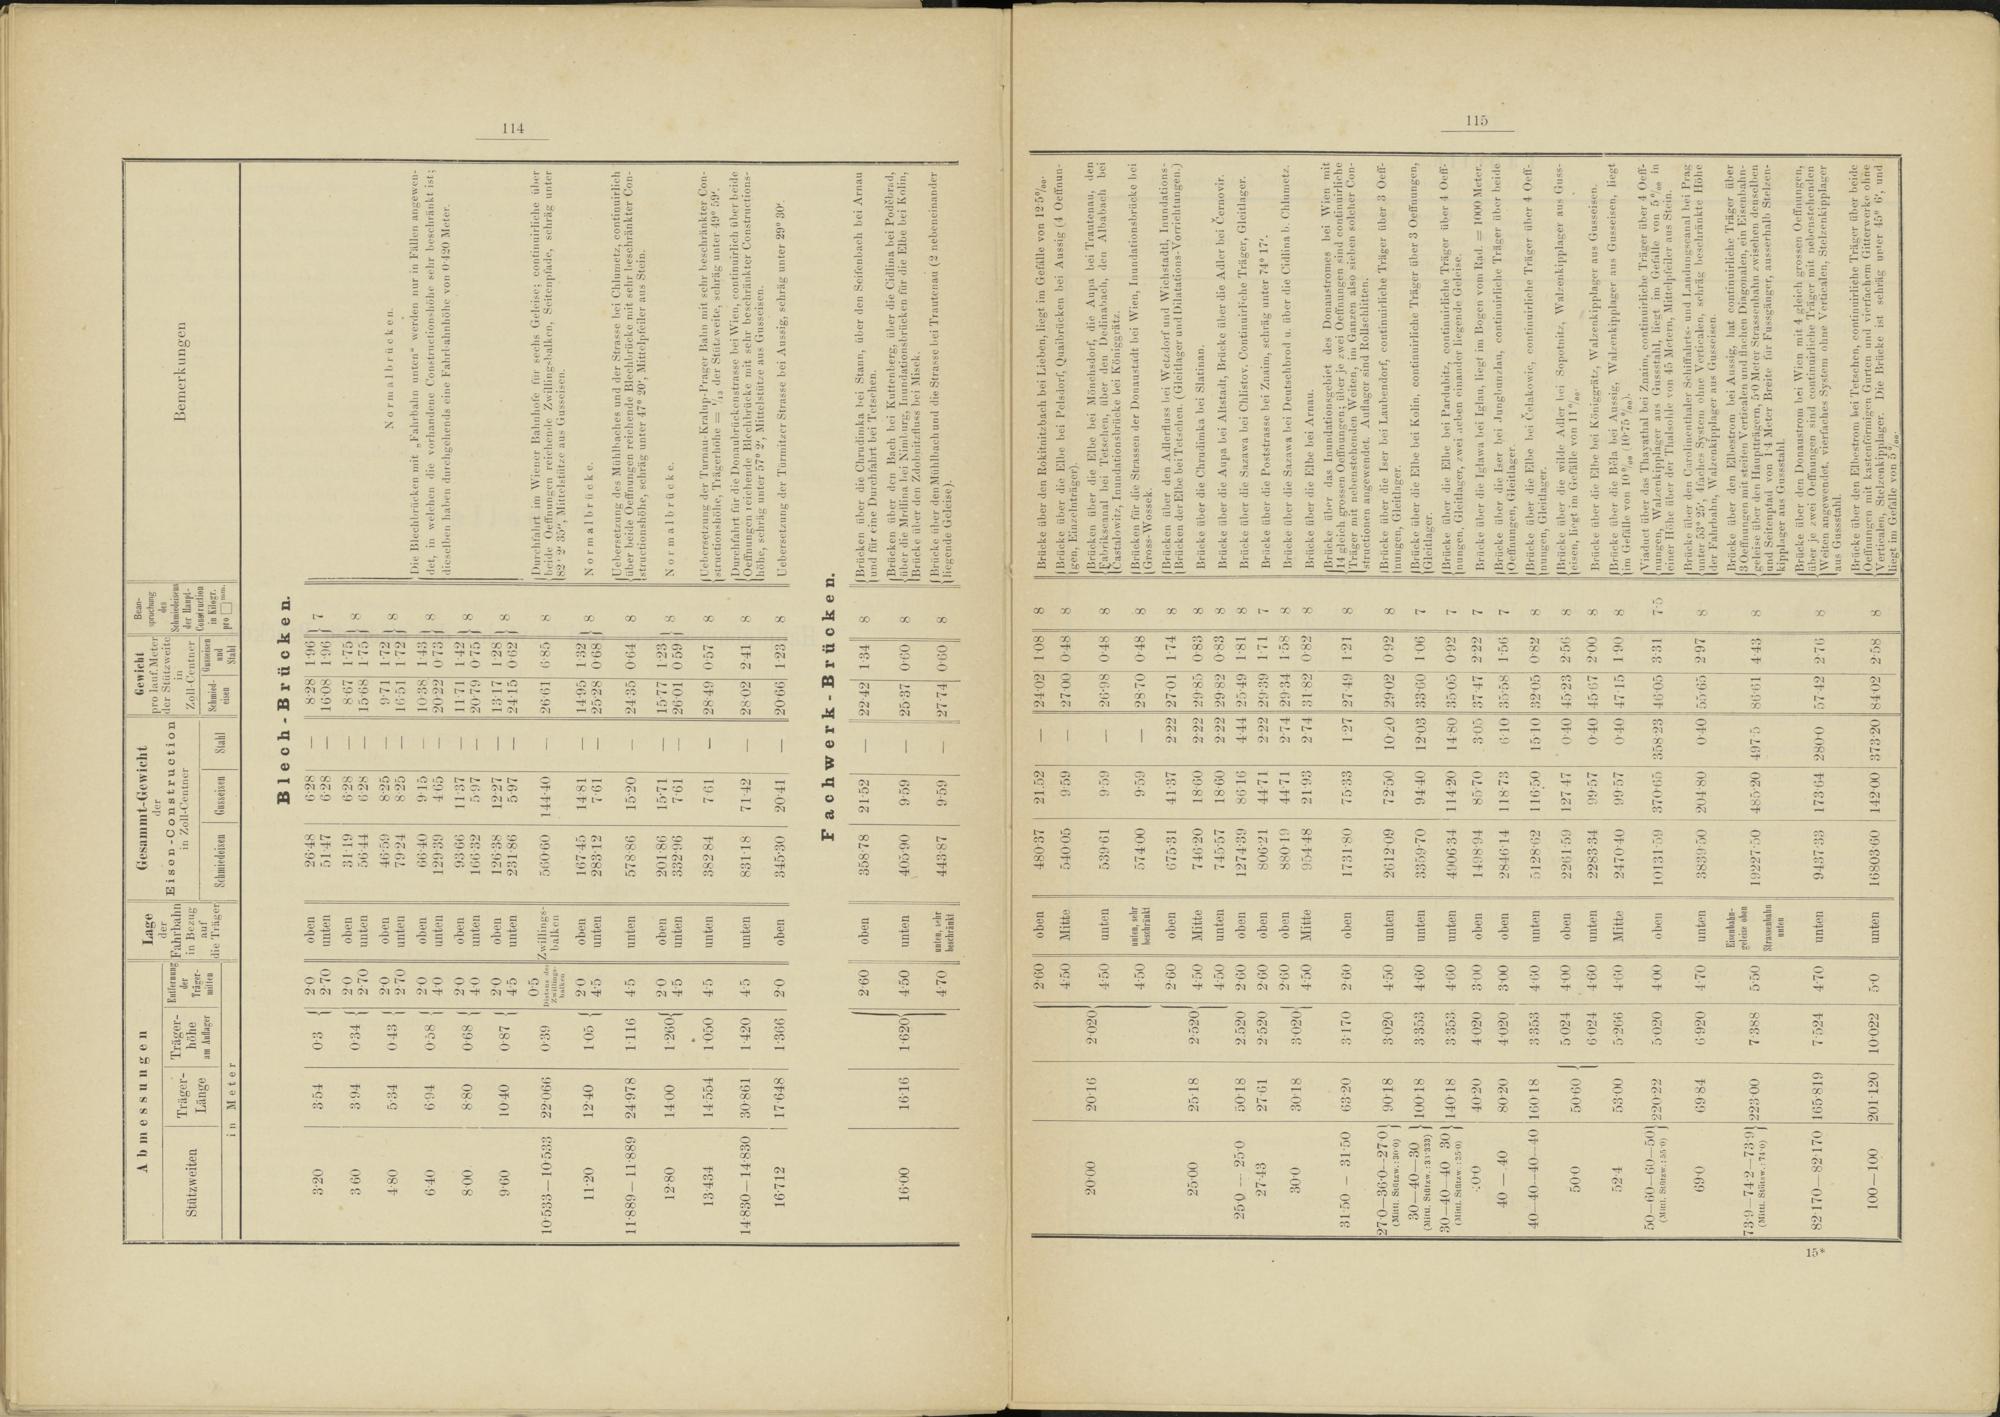 114
Abmessungen
Stützweiten
Träger-Länge
Träger-höhe am Auflager
Entfernung der Träger-mitten
in Meter
Lage der Fahrbahn in Bezug auf die Träger
Gesammt-Gewicht der Eisen-Construction in Zoll-Centner
Schmiedeisen
Gusseisen
Stahl
Gewicht pro lauf. Meter der Stützweite in Zoll-Centner
Schmied-eisen
Gusseisen und Stahl
Bean-spruchung des Schmiedeisens der Haupt-Construction in Kilogr. pro □ mm.
Bemerkungen
Blech-Brücken.
3·20 3·54 0·3 2·0 oben 26·48 6·28 — 8·28 1·96 7
2·70 unten 51·47 6·28 — 16·08 1·96
3·60 3·94 0·34 2·0 oben 31·19 6·28 — 8·67 1·75 8
2·70 unten 56·44 6·28 — 15·68 1·75
4·80 5·34 0·43 2·0 oben 46·59 8·25 — 9·71 1·72 8
2·70 unten 79·24 8·25 — 16·51 1·72
6·40 6·94 0·58 2·0 oben 66·40 9·15 — 10·38 1·43 8
4·0 unten 129·39 4·65 — 20·22 0·73
8·00 8·80 0·68 2·0 oben 93·66 11·37 — 11·71 1·42 8
4·0 unten 166·32 5·97 — 20·79 0·75
9·60 10·40 0·87 2·0 oben 126·38 12·27 — 13·17 1·28 8
4·5 unten 231·86 5·97 — 24·15 0·62
Normalbrücken.
Die Blechbrücken mit „Fahrbahn unten“ werden nur in Fällen angewen-
det, in welchen die vorhandene Constructionshöhe sehr beschränkt ist;
dieselben haben durchgehends eine Fahrbahnhöhe von 0·420 Meter.
10·533 — 10·533 22·066 0·39 0·5 Distanz der Zwillings-balken Zwillings-balken 560·60 144·40 — 26·61 6·85 8
Durchfahrt im Wiener Bahnhofe für sechs Geleise; continuirliche über
beide Oeffnungen reichende Zwillings-balken, Seitenpfade, schräg unter
82° 2' 35", Mittelstütze aus Gusseisen.
11·20 12·40 1·05 2·0 oben 167·45 14·81 — 14·95 1·32 8 Normalbrücke.
4·5 unten 283·12 7·61 — 25·28 0·68
11·889 — 11·889 24·978 1·116 4·5 unten 578·86 15·20 — 24·35 0·64 8
Uebersetzung des Mühlbaches und der Strasse bei Chlumetz, continuirlich
über beide Oeffnungen reichende Blechbrücke mit sehr beschränkter Con-
structionshöhe, schräg unter 47° 20', Mittelpfeiler aus Stein.
12·80 14·00 1·260 2·0 oben 201·86 15·71 — 15·77 1·23 8 Normalbrücke.
4·5 unten 332·96 7·61 — 26·01 0·59
13·434 14·554 1·050 4·5 unten 382·84 7·61 — 28·49 0·57 8
Uebersetzung der Turnau-Kralup-Prager Bahn mit sehr beschränkter Con-
structionshöhe, Trägerhöhe = 1/13 der Stützweite, schräg unter 49° 59'.
14·830 — 14·830 30·861 1·420 4·5 unten 831·18 71·42 — 28·02 2·41 8
Durchfahrt für die Donaubrückenstrasse bei Wien, continuirlich über beide
Oeffnungen reichende Blechbrücke mit sehr beschränkter Constructions-
höhe, schräg unter 57° 2', Mittelstütze aus Gusseisen.
16·712 17·648 1·366 2·0 oben 345·30 20·41 — 20·66 1·23 8 Uebersetzung der Türmitzer Strasse bei Aussig, schräg unter 29° 30'.
Fachwerk-Brücken.
16·00 16·16 1·620 2·60 oben 358·78 21·52 — 22·42 1·34 8
Brücken über die Chrudimka bei Stann, über den Seifenbach bei Arnau
und für eine Durchfahrt bei Tetschen.
4·50 unten 405·90 9·59 — 25·37 0·60 8
Brücken über den Bach bei Kuttenberg, über die Cidlina bei Poděbrad,
über die Mrdlina bei Nimburg, Inundationsbrücken für die Elbe bei Kolin,
Brücke über den Zdobnitzfluss bei Misek.
4·70 unten, sehr beschränkt 443·87 9·59 — 27·74 0·60 8
Brücke über den Mühlbach und die Strasse bei Trautenau (2 nebeneinander
liegende Geleise).
115
20·00 20·16 2·020 2·60 oben 480·37 21·52 — 24·02 1·08 8 Brücke über den Rokitnitzbach bei Lieben, liegt im Gefälle von 12·5‰.
4·50 Mitte 540·05 9·59 — 27·00 0·48 8
Brücke über die Elbe bei Pelsdorf, Quaibrücken bei Aussig (4 Oeffnun-
gen, Einzelnträger).
4·50 unten 539·61 9·59 — 26·98 0·48 8
Brücken über die Elbe bei Mönchsdorf, die Aupa bei Trautenau, den
Fabrikscanal bei Tetschen, über den Dedinabach, den Albabach bei
Castalowitz, Inundationsbrücke bei Königgrätz.
4·50 unten, sehr beschränkt 574·00 9·59 — 28·70 0·48 8
Brücken für die Strassen der Donaustadt bei Wien, Inundationsbrücke bei
Gross-Wossek.
25·00 25·18 2·520 2·60 oben 675·31 41·37 2·22 27·01 1·74 8
Brücken über den Adlerfluss bei Wetzdorf und Wichstadtl, Inundations-
Brücken der Elbe bei Tetschen. (Gleitlager und Dilatations-Vorrichtungen.)
4·50 Mitte 746·20 18·60 2·22 29·85 0·83 8 Brücke über die Chrudimka bei Slatinan.
4·50 unten 745·57 18·60 2·22 29·82 0·83 8 Brücke über die Aupa bei Altstadt, Brücke über die Adler bei Černovir.
25·0 — 25·0 50·18 2·520 2·60 oben 1274·39 86·16 4·44 25·49 1·81 8 Brücke über die Sazawa bei Chlistov. Continuirliche Träger, Gleitlager.
27·43 27·61 2·520 2·60 oben 806·21 44·71 2·22 29·39 1·71 7 Brücke über die Poststrasse bei Znaim, schräg unter 74° 17'.
30·0 30·18 3·020 2·60 oben 880·19 44·71 2·74 29·34 1·58 8 Brücke über die Sazawa bei Deutschbrod u. über die Cidlina b. Chlumetz.
4·50 Mitte 954·48 21·93 2·74 31·82 0·82 8 Brücke über die Elbe bei Arnau.
31·50 — 31·50 63·20 3·170 2·60 oben 1731·80 75·33 1·27 27·49 1·21 8
Brücke über das Inundationsgebiet des Donaustromes bei Wien mit
14 gleich grossen Oeffnungen; über je zwei Oeffnungen sind continuirliche
Träger mit nebenstehenden Weiten, im Ganzen also sieben solcher Con-
structionen angewendet. Auflager sind Rollschlitten.
27·0—36·0—27·0 (Mittl. Stützw.: 30·0) 90·18 3·020 4·50 unten 2612·09 72·50 10·20 29·02 0·92 8
Brücke über die Iser bei Laubendorf, continuirliche Träger über 3 Oeff-
nungen, Gleitlager.
30—40—30 (Mittl. Stützw.: 33·333) 100·18 3·353 4·60 unten 3359·70 94·40 12·03 33·60 1·06 7
Brücke über die Elbe bei Kolin, continuirliche Träger über 3 Oeffnungen,
Gleitlager.
30—40—40 30 (Mittl. Stützw.: 35·0) 140·18 3·353 4·60 unten 4906·34 114·20 14·80 35·05 0·92 7
Brücke über die Elbe bei Pardubitz, continuirliche Träger über 4 Oeff-
nungen, Gleitlager, zwei neben einander liegende Geleise.
40·20 4·020 3·00 oben 1498·94 85·70 3·05 37·47 2·22 7 Brücke über die Iglawa bei Iglau, liegt im Bogen vom Rad. = 1000 Meter.
40 — 40 80·20 4·020 3·00 oben 2846·14 118·73 6·10 35·58 1·56 7
Brücke über die Iser bei Jungbunzlau, continuirliche Träger über beide
Oeffnungen, Gleitlager.
40—40—40—40 160·18 3·353 4·60 unten 5128·62 116·50 15·10 32·05 0·82 8
Brücke über die Elbe bei Čelakowic, continuirliche Träger über 4 Oeff-
nungen, Gleitlager.
50·0 50·60 5·024 4·00 oben 2261·59 127·47 0·40 45·23 2·56 8
Brücke über die wilde Adler bei Sopotnitz, Walzenkipplager aus Guss-
eisen, liegt im Gefälle von 11‰.
6·024 4·60 unten 2283·34 99·57 0·40 45·67 2·00 8 Brücke über die Elbe bei Königgrätz, Walzenkipplager aus Gusseisen.
52·4 53·00 5·266 4·60 Mitte 2470·40 99·57 0·40 47·15 1·90 8
Brücke über die Béla bei Aussig, Walzenkipplager aus Gusseisen, liegt
im Gefälle von 10‰ (10·75‰).
50—60—60—50 (Mittl. Stützw.: 55·0) 220·22 5·020 4·00 oben 10131·59 370·65 358·23 46·05 3·31 7·5
Viaduct über das Thayathal bei Znaim, continuirliche Träger über 4 Oeff-
nungen, Walzenkipplager aus Gussstahl, liegt im Gefälle von 5‰ in
einer Höhe über der Thalsohle von 45 Metern, Mittelpfeiler aus Stein.
69·0 69·84 6·920 4·70 unten 3839·50 204·80 0·40 55·65 2·97 8
Brücke über den Carolinenthaler Schiffahrts- und Landungscanal bei Prag
unter 53° 25', 4faches System ohne Verticalen, schräg beschränkte Höhe
der Fahrbahn, Walzenkipplager aus Gusseisen.
73·9—74·2—73·9 (Mittl. Stützw.: 74·0) 223·00 7·388 5·50 Eisenbahn-geleise oben Strassenbahn unten 19227·50 485·20 497·5 86·61 4·43 8
Brücke über den Elbestrom bei Aussig, hat continuirliche Träger über
3 Oeffnungen mit steifen Verticalen und flachen Diagonalen, ein Eisenbahn-
geleise über den Hauptträgern, 5·0 Meter Strassenbahn zwischen denselben
und Seitenpfad von 1·4 Meter Breite für Fussgänger, ausserhalb Stelzen-
kipplager aus Gussstahl.
82·170—82·170 165·819 7·524 4·70 unten 9437·33 173·64 280·0 57·42 2·76 8
Brücke über den Donaustrom bei Wien mit 4 gleich grossen Oeffnungen,
über je zwei Oeffnungen sind continuirliche Träger mit nebenstehenden
Weiten angewendet, vierfaches System ohne Verticalen, Stelzenkipplager
aus Gussstahl.
100—100 201·120 10·022 5·0 unten 16803·60 142·00 373·20 84·02 2·58 8
Brücke über den Elbestrom bei Tetschen, continuirliche Träger über beide
Oeffnungen mit kastenförmigen Gurten und vierfachem Gitterwerke ohne
Verticalen, Stelzenkipplager. Die Brücke ist schräg unter 45° 6', und
liegt im Gefälle von 5‰.
15*